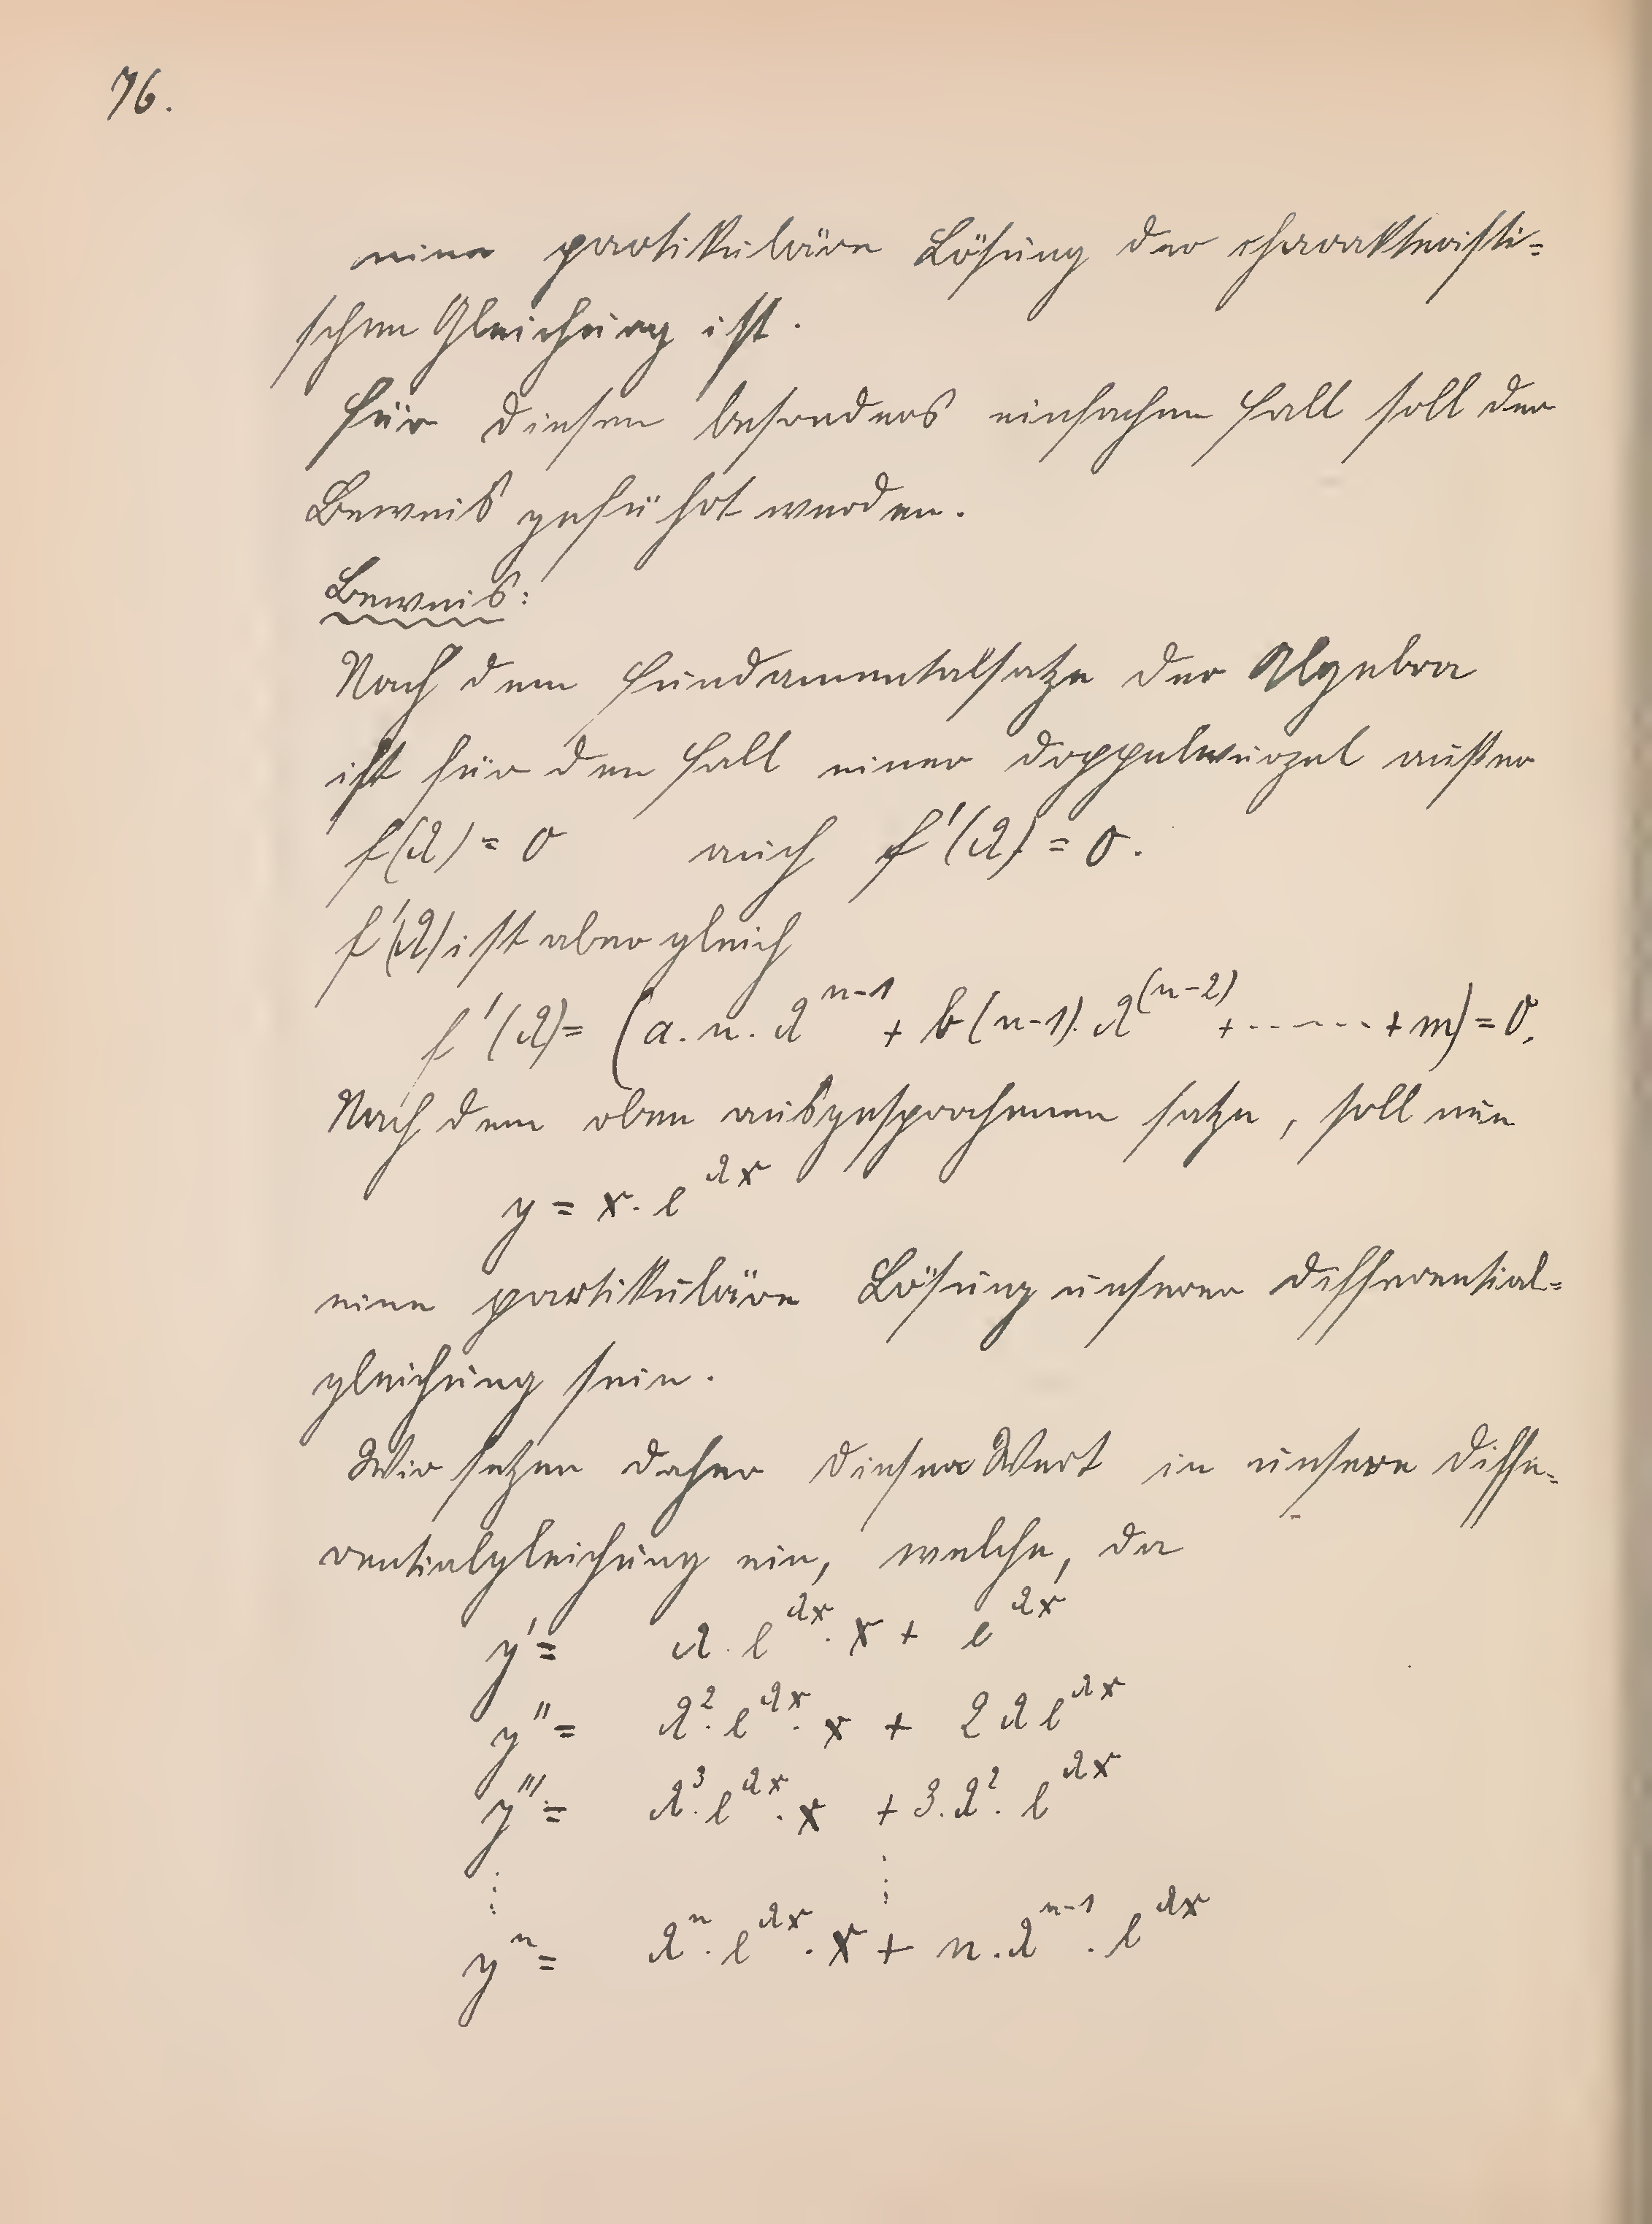 76.
eine partikuläre Lösung der charakteristi-
schen Gleichung ist.
Für diesen besonders einfachen Fall soll der
Beweis geführt werden.
Beweis:
Nach dem Fundamentalsatze der Algebra
ist für den Fall einer Doppelwurzel außer
f(λ) = 0 auch f'(λ) = 0.
f'(λ) ist aber gleich
f'(λ) = (a.n.λ^{n-1} + b(n-1).λ^{(n-2)} + ------ + m) = 0.
Nach dem oben ausgesprochenen Satze, soll nun
y = x.e^{λx}
eine partikuläre Lösung unserer Differential-
gleichung sein.
Wir setzen daher diesen Wert in unsere Diffe-
rentialgleichung ein, welche, da
y' = λ.e^{λx}.x + e^{λx}
y'' = λ^2.e^{λx}.x + 2λe^{λx}
y''' = λ^3.e^{λx}.x + 3.λ^2.e^{λx}
⋮ ⋮
y^n = λ^n.e^{λx}.x + n.λ^{n-1}.e^{λx}